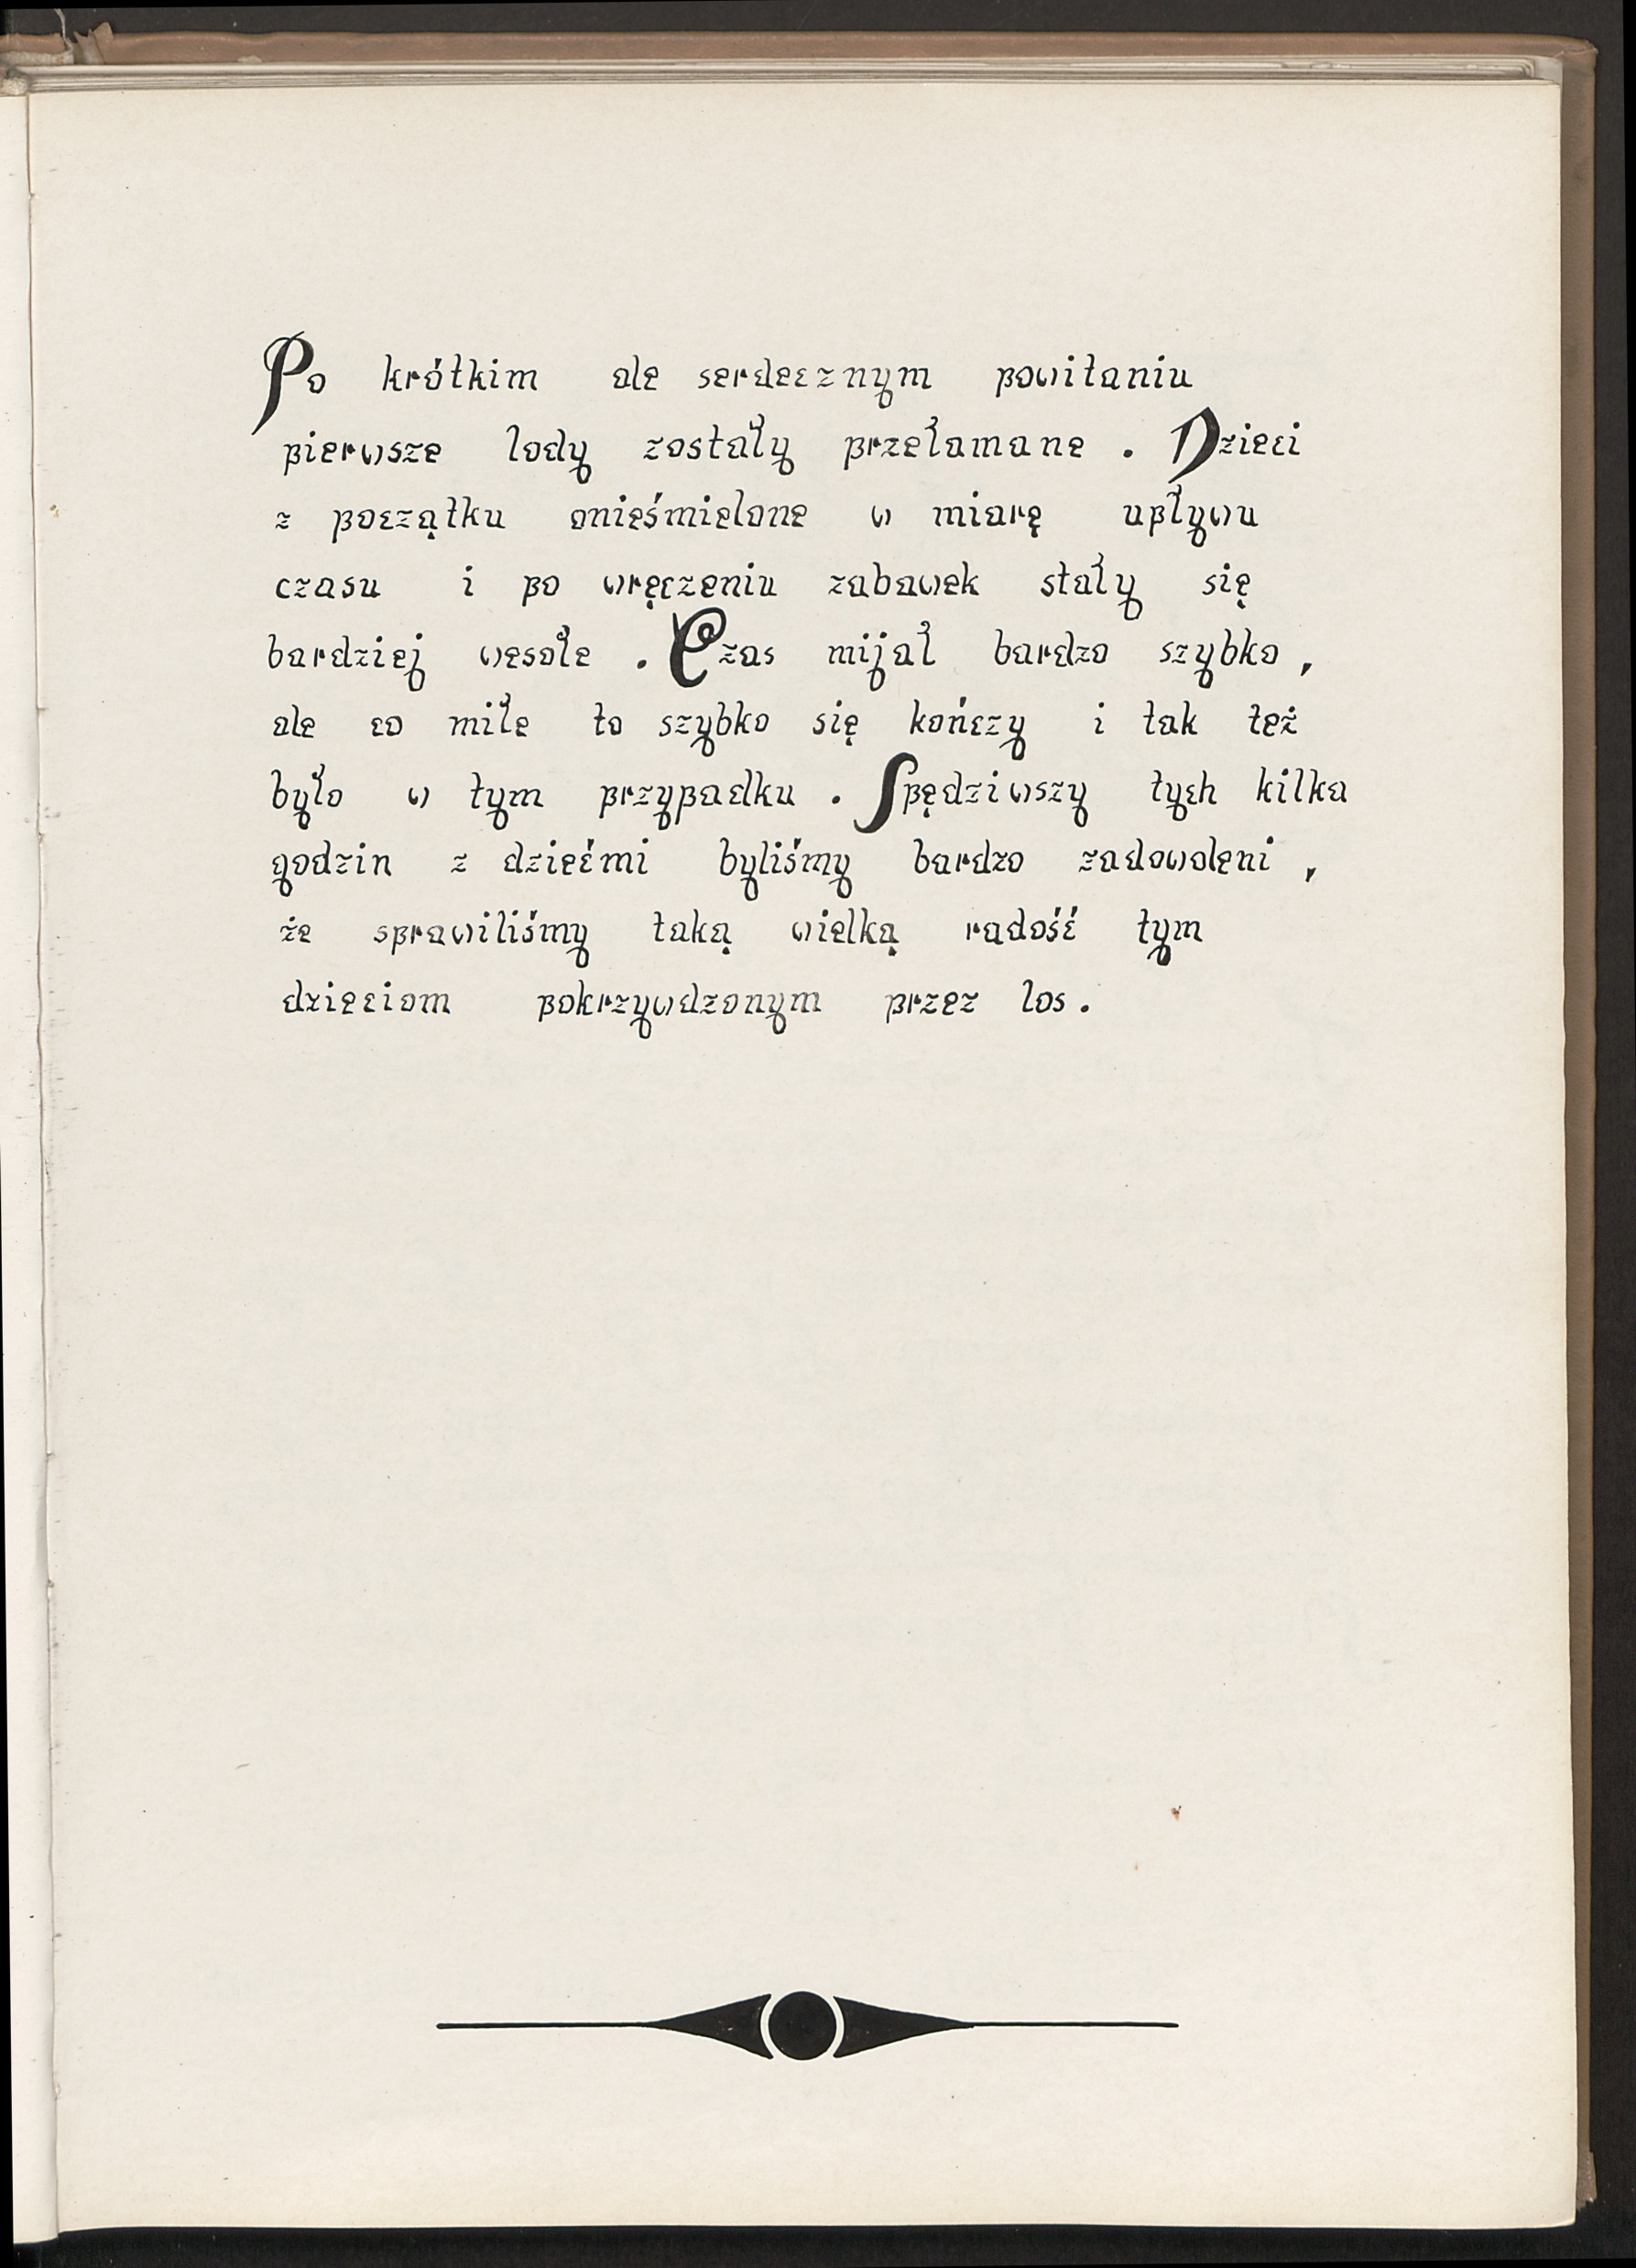 Po krótkim ale serdecznym powitaniu
pierwsze lody zostały przełamane . Dzieci
z początku onieśmielone w miarę upływu
czasu i po wręczeniu zabawek stały się
bardziej wesołe . Czas mijał bardzo szybko ,
ale co miłe to szybko się kończy i tak też
było w tym przypadku . Spędziwszy tych kilka
godzin z dziećmi byliśmy bardzo zadowoleni ,
że sprawiliśmy taką wielką radość tym
dzieciom pokrzywdzonym przez los .